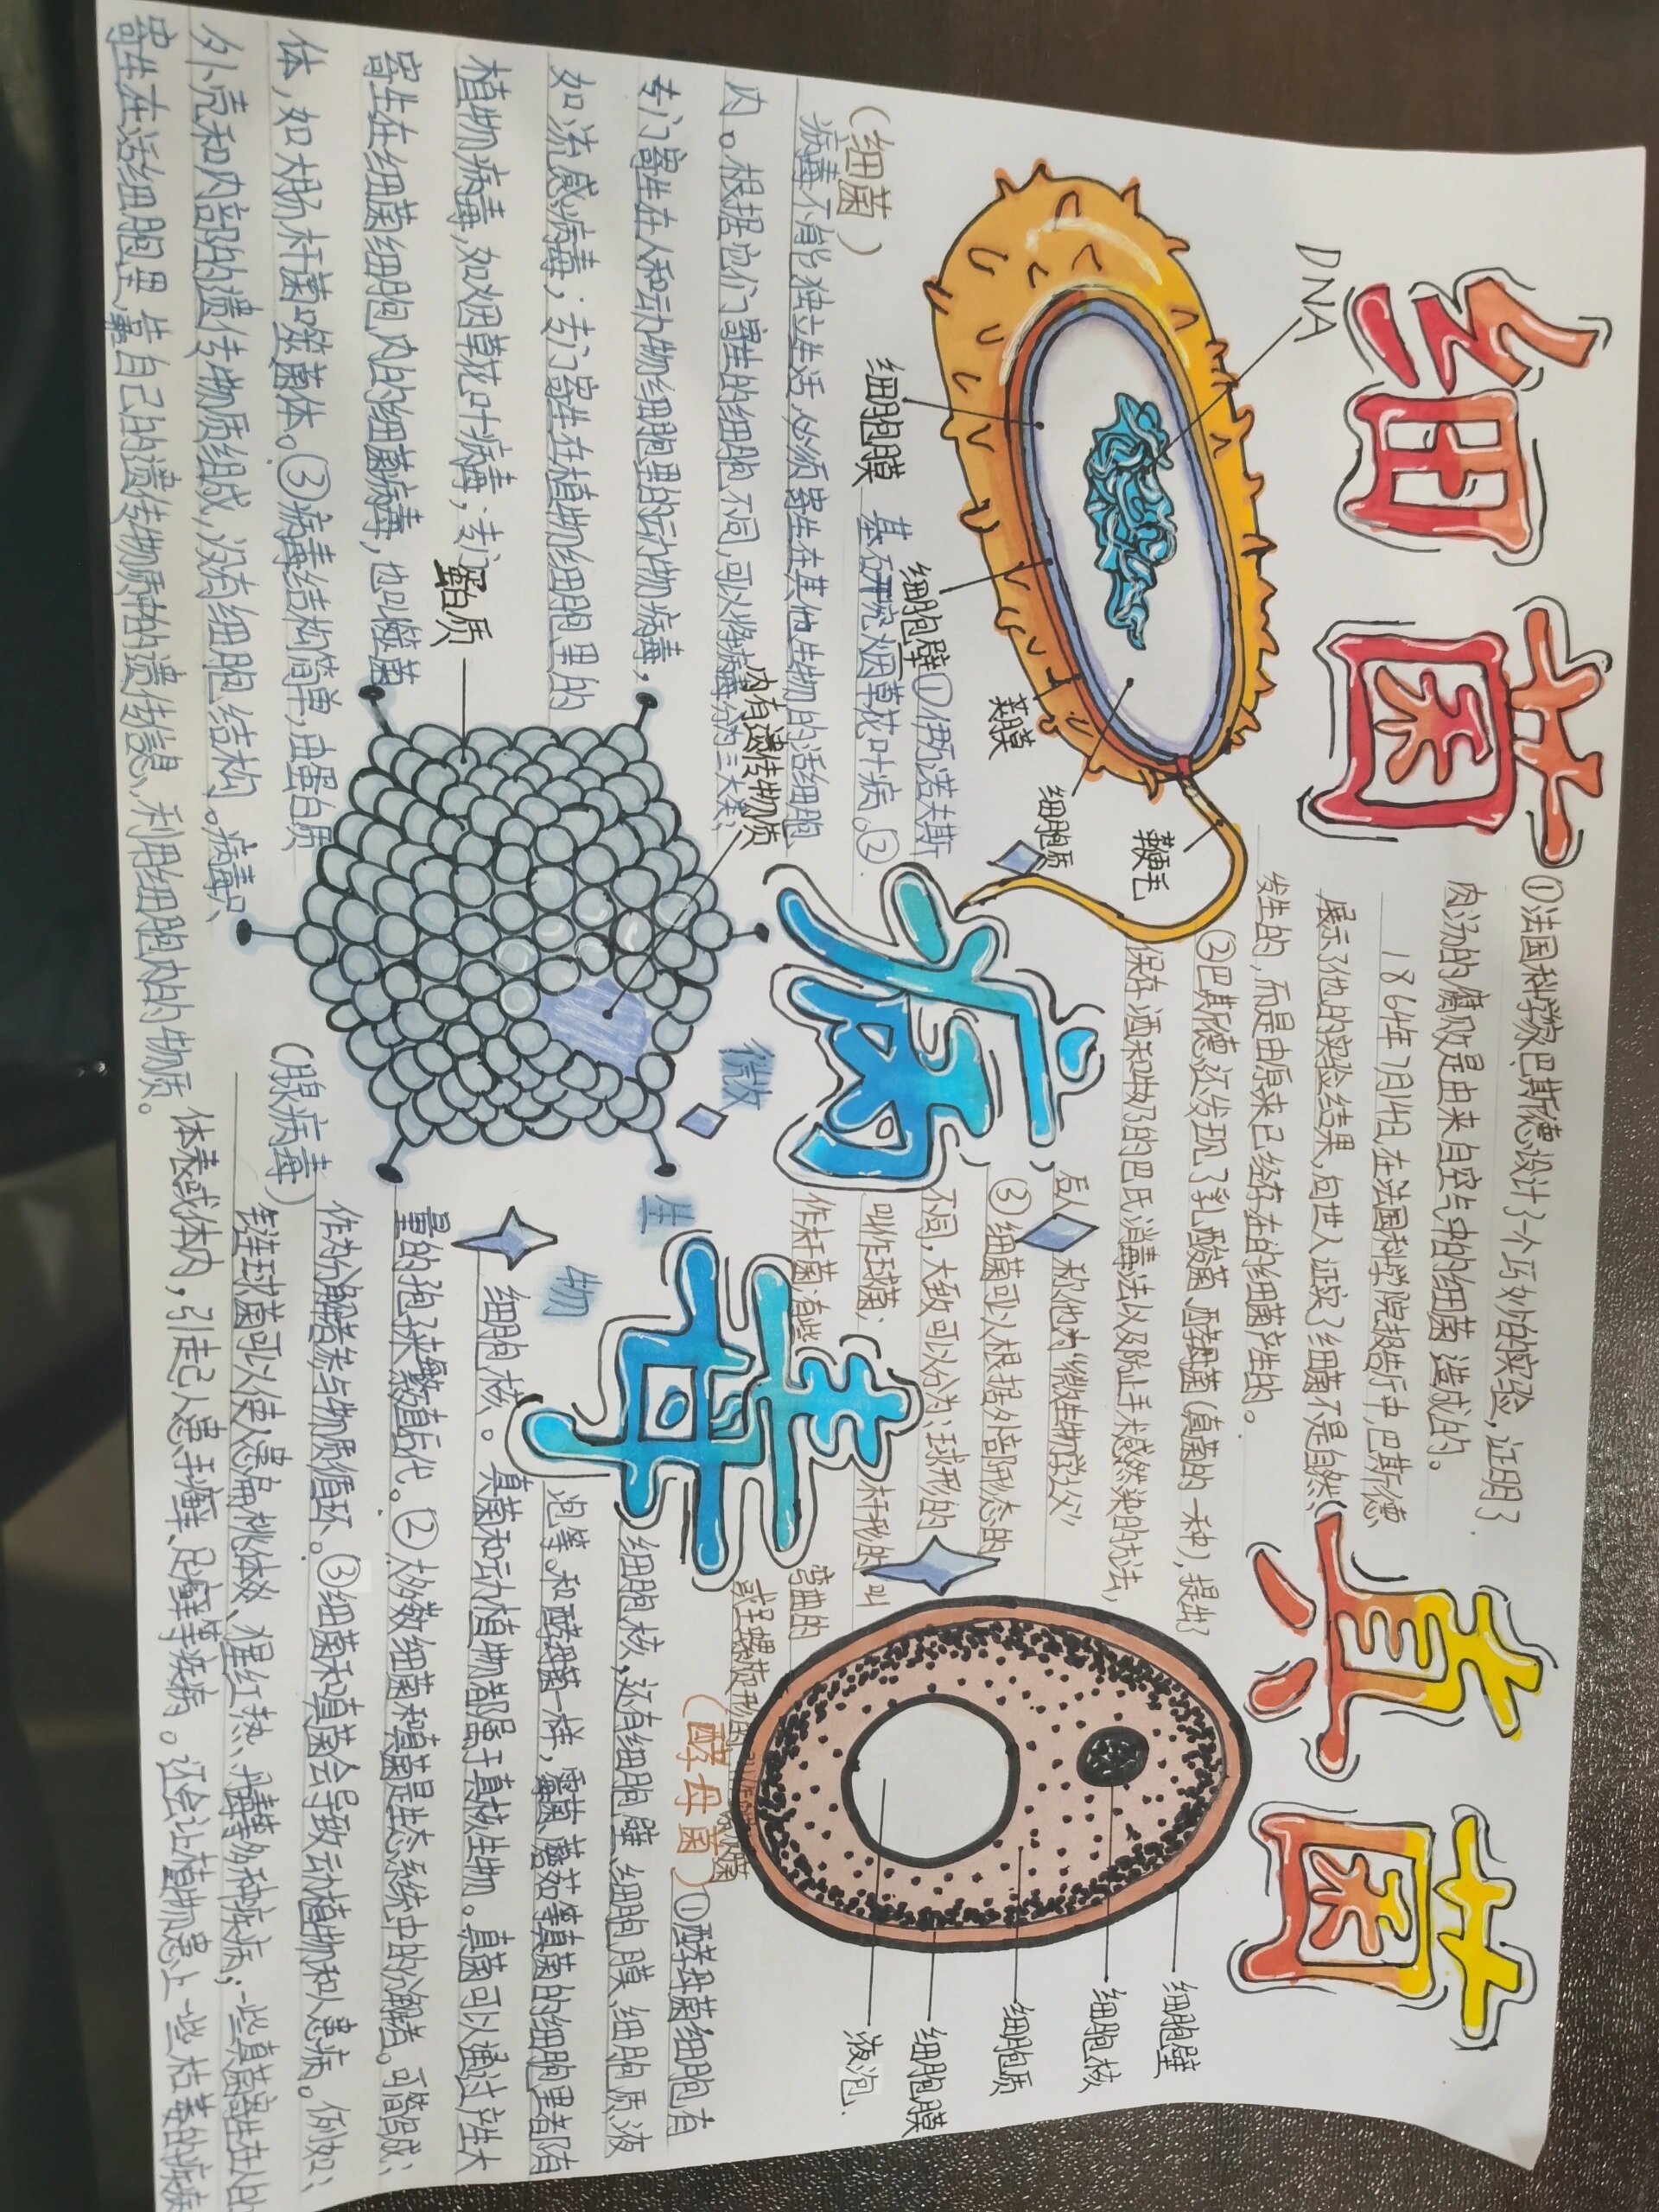 细菌
DNA
细胞膜
细胞壁
荚膜
细胞质
鞭毛
(细菌)
①法国科学家巴斯德设计了一个巧妙的实验,证明了
肉汤的腐败是由来自空气中的细菌造成的。
1864年7月14日,在法国科学院报告厅中,巴斯德
展示了他的实验结果,向世人证实了细菌不是自然
发生的,而是由原来已经存在的细菌产生的。
②巴斯德还发现了乳酸菌、酵母菌(真菌的一种),提出了
保存酒和牛奶的巴氏消毒法以及防止手术感染的方法,
后人称他为“微生物学之父”
③细菌可以根据外部形态的
不同,大致可以分为:球形的
叫作球菌;杆形的叫
作杆菌;有些弯曲的
或呈螺旋形的
真菌
细胞壁
细胞核
细胞质
细胞膜
液泡.
(酵母菌)
①酵母菌细胞有
细胞核,还有细胞壁、细胞膜、细胞质、液
泡等。和酵母菌一样,霉菌、蘑菇等真菌的细胞里都有
细胞核。真菌和动植物都属于真核生物。真菌可以通过产生大
量的孢子来繁殖后代。②大多数细菌和真菌是生态系统中的分解者。可简略成:
作为分解者参与物质循环。③细菌和真菌会导致动植物和人患病。例如:
链球菌可以使人患扁桃体炎、猩红热、丹毒等多种疾病;一些真菌寄生在人的
体表或体内,引起人患手癣、足癣等疾病。还会让植物患上一些枯萎的疾病
病毒
微生物
①伊万诺夫斯
基研究烟草花叶病。②
病毒不能独立生活,必须寄生在其他生物的活细胞
内。根据他们寄生的细胞不同,可以将病毒分为三大类:
专门寄生在人和动物细胞里的动物病毒,
如流感病毒;专门寄生在植物细胞里的
植物病毒,如烟草花叶病毒;专门
寄生在细菌细胞内的细菌病毒,也叫噬菌
体,如大肠杆菌噬菌体。③病毒结构简单,由蛋白质
外壳和内部的遗传物质组成,没有细胞结构。病毒只
寄生在活细胞里,靠自己的遗传物质中的遗传信息、利用细胞内的物质。
蛋白质
内有遗传物质
(腺病毒)